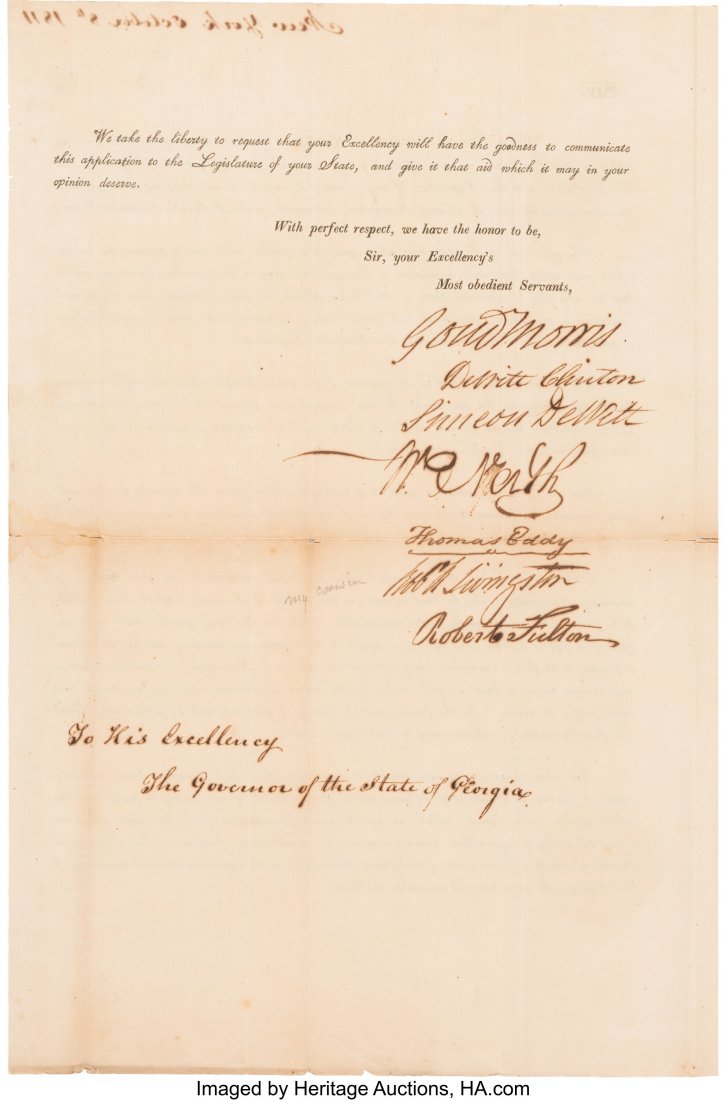 New York October 8th 1811
Sir,
We take the liberty to request that your Excellency will have the goodness to communicate
this application to the Legislature of your State, and give it that aid which it may in your
opinion deserve.
With perfect respect, we have the honor to be,
Sir, your Excellency's
Most obedient Servants,
Gouv Morris
DeWitt Clinton
Simeon DeWitt
Wm North
Thomas Eddy
Robt R Livingston
Robert Fulton
To His Excellency
The Governor of the State of Georgia
Imaged by Heritage Auctions, HA.com